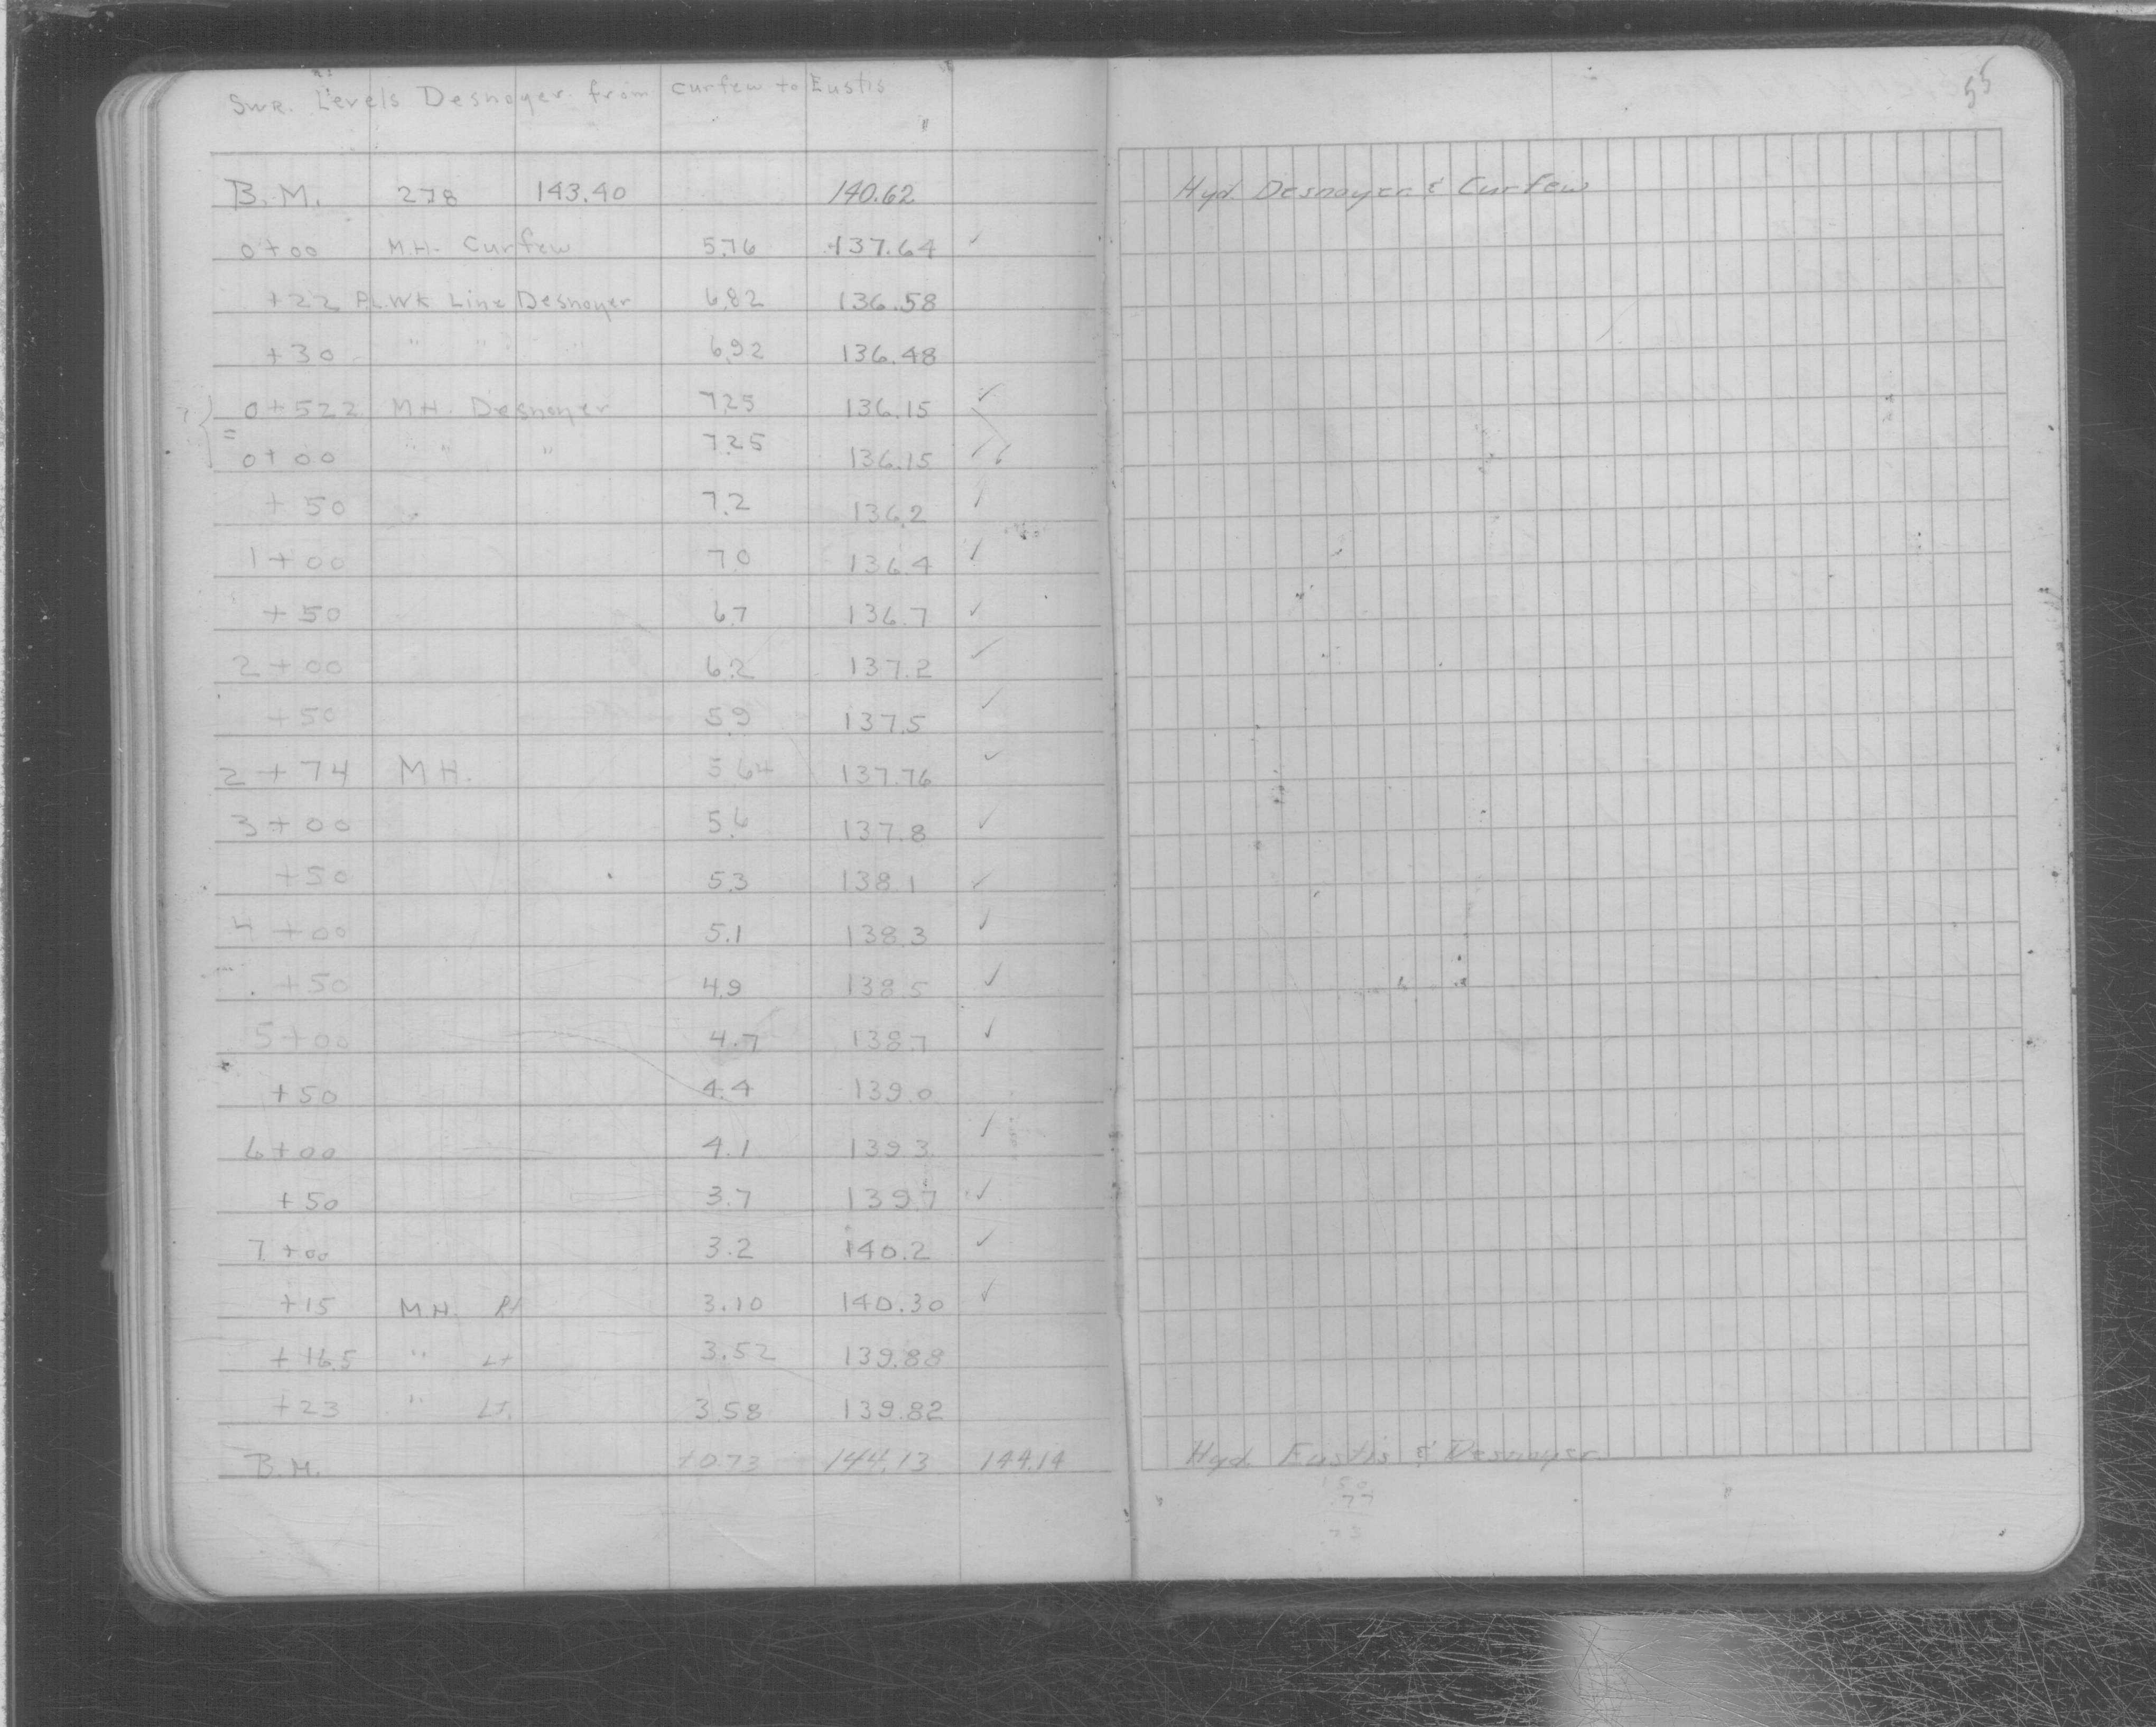 Swr. Levels Desnoyer from Curfew to Eustis
55
B.M. 2.78 143.40 140.62 Hyd. Desnoyer & Curfew
0+00 M.H. Curfew 5.76 137.64 ✓
+22 P.L. WK Line Desnoyer 6.82 136.58
+30 " " " 6.92 136.48
? 0+522 M.H. Desnoyer 7.25 136.15 ✓
= 0+00 " " " 7.25 136.15 ✓✓
+50 7.2 136.2 ✓
1+00 7.0 136.4 ✓
+50 6.7 136.7 ✓
2+00 6.2 137.2 ✓
+50 5.9 137.5 ✓
2+74 M.H. 5.64 137.76 ✓
3+00 5.6 137.8 ✓
+50 5.3 138.1 ✓
4+00 5.1 138.3 ✓
+50 4.9 138.5 ✓
5+00 4.7 138.7 ✓
+50 4.4 139.0
6+00 4.1 139.3 ✓
+50 3.7 139.7 ✓
7+00 3.2 140.2 ✓
+15 M.H. Rt 3.10 140.30 ✓
+16.5 " Lt 3.52 139.88
+23 " Lt. 3.58 139.82
B.M. +0.73 144.13 144.14 Hyd. Eustis & Desnoyer
150
77
73